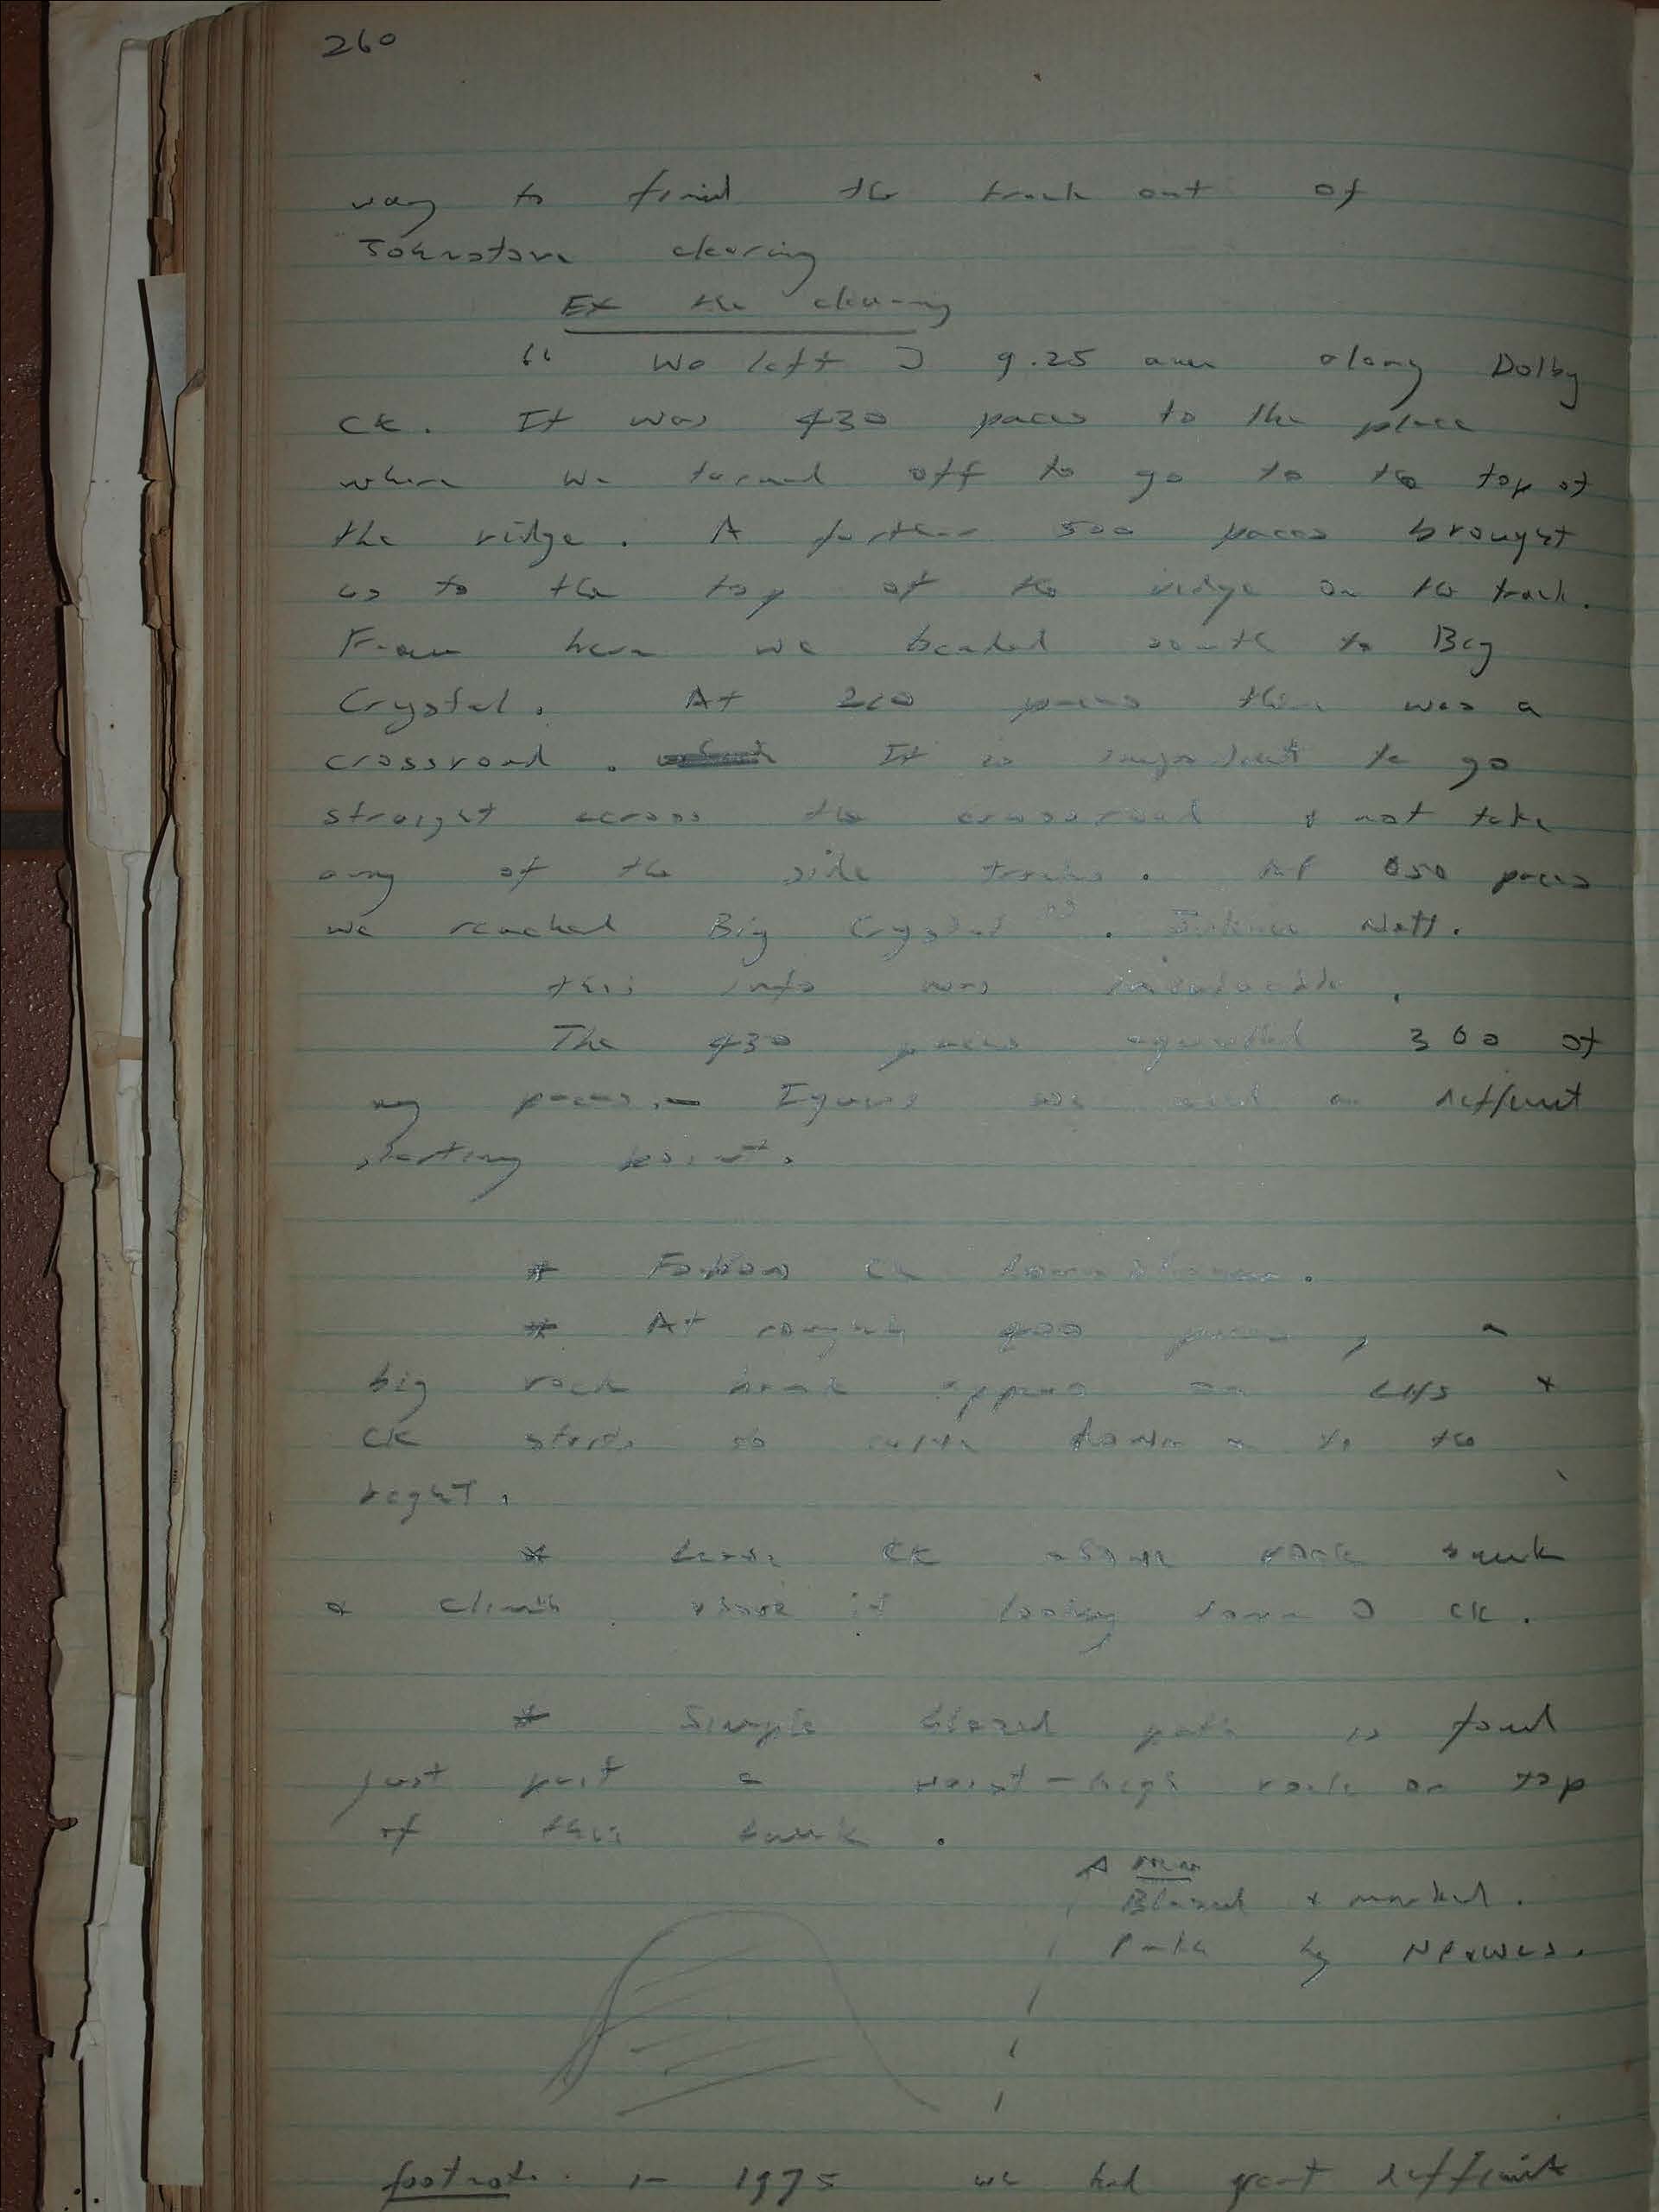 260
way to find the track out of
Johnstone clearing
Ex the clearing
“ We left J 9.25 am along Dolby
Ck. It was 430 paces to the place
where we turned off to go to the top of
the ridge. A further 500 paces brought
us to the top of the ridge on the track.
From here we headed south to Big
Crystal. At 210 paces there was a
crossroad. It is important to go
straight across the crossroad & not take
any of the side tracks. At 850 paces
we reached Big Crystal”. Nott.
this info was invaluable.
The 430 paces equalled 360 of
my paces. — I guess we used a different
starting point.
* Follow Ck downstream.
* At roughly 400 paces, a
big rock bank appears on LHS &
Ck starts to curve down to the
right.
* Leave Ck above rock bank
& climb above it looking down J Ck.
* Single blazed path is found
just past a waist-high rock on top
of this bank.
Blazed & marked.
Path by NP&WLS.
footnote. In 1975 we had great difficult